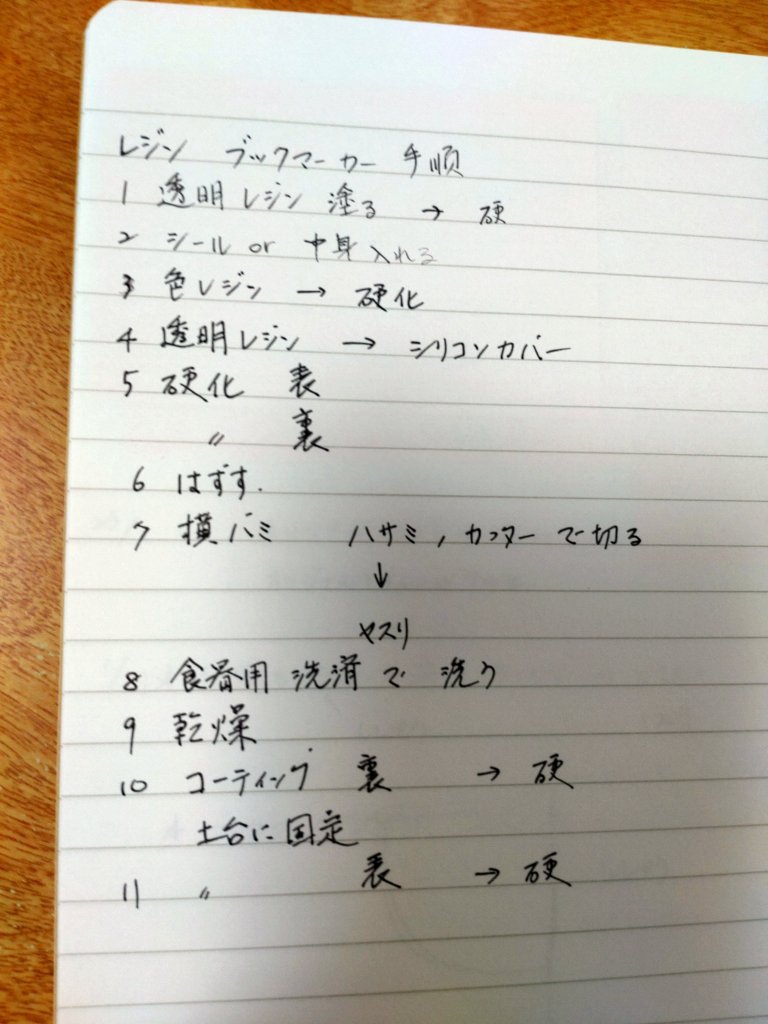 レジン ブックマーカー 手順
1 透明レジン 塗る → 硬
2 シール or 中身入れる
3 色レジン → 硬化
4 透明レジン → シリコンカバー
5 硬化 表
〃 裏
6 はずす.
7 横バミ ハサミ,カッターで切る
↓
ヤスリ
8 食器用 洗済で 洗う
9 乾燥
10 コーティング 裏 → 硬
土台に固定
11 〃 表 → 硬